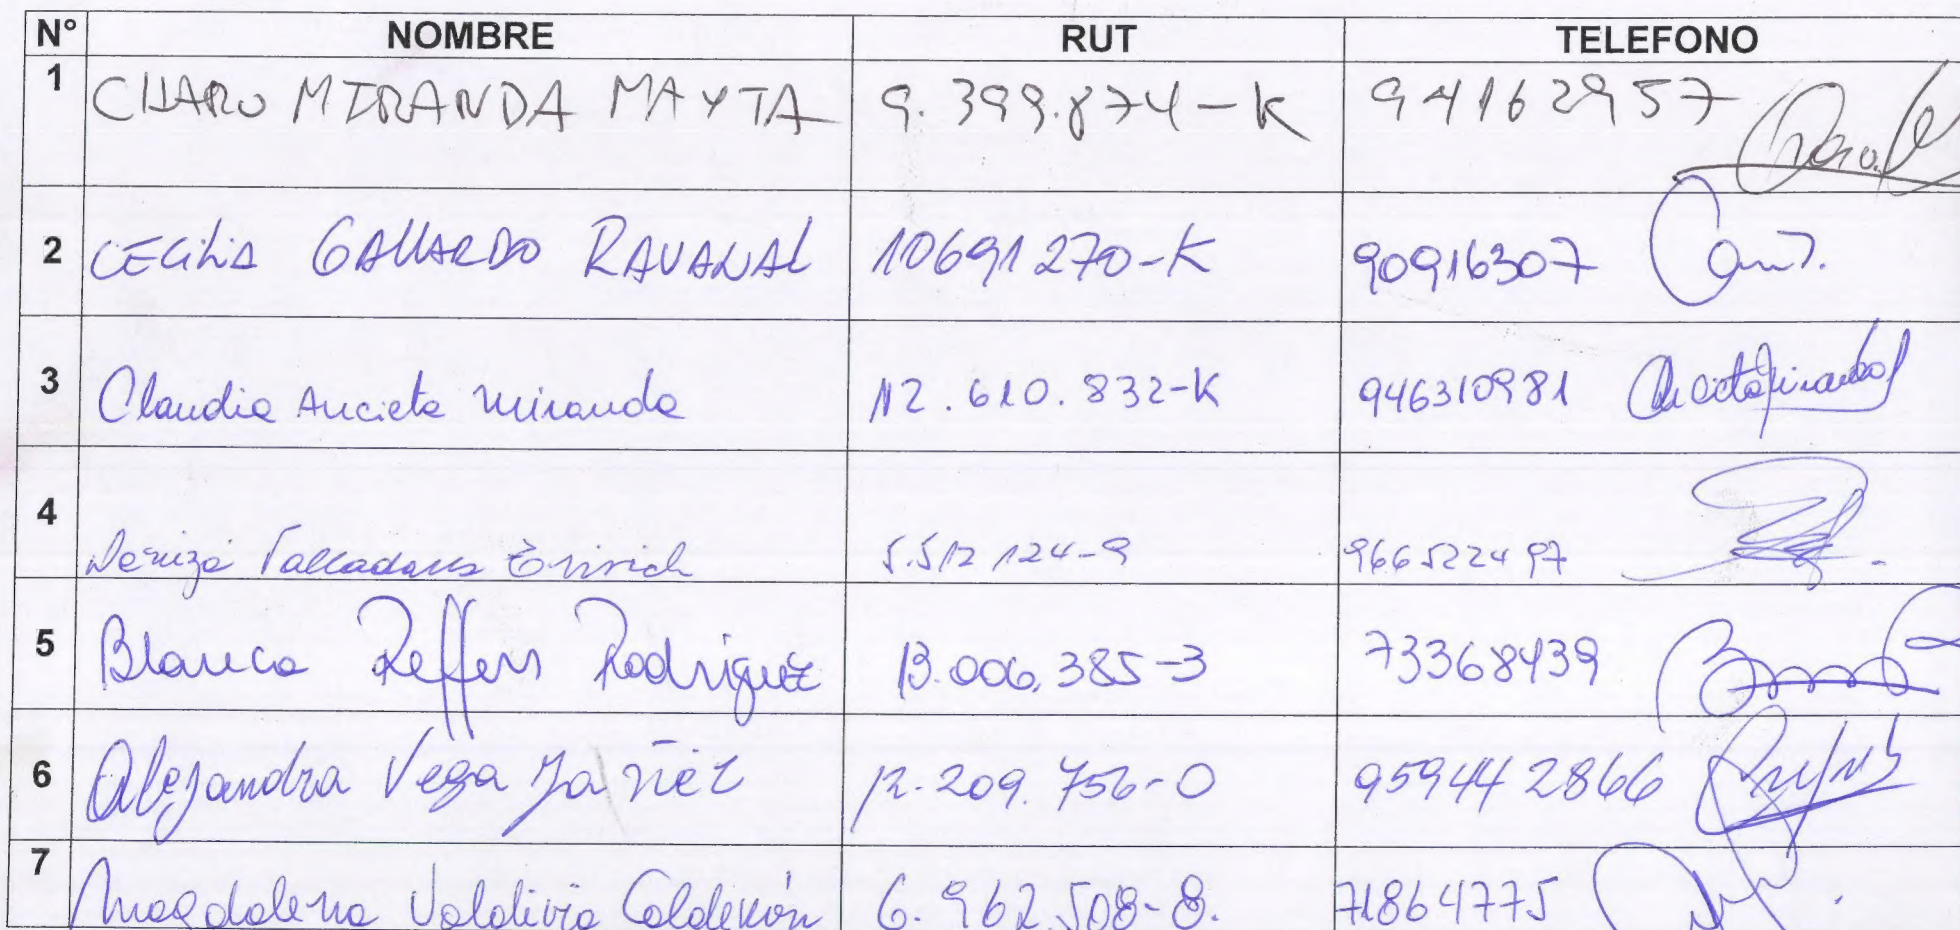 N° NOMBRE RUT TELEFONO
1 CHARO MIRANDA MAYTA 9.399.874-K 94162957
2 CECiliA GAllARDO RAVANAL 10691270-K 90916307
3 Claudia Ancieta Miranda 12.610.832-K 946310981
4 Valladares 5.512124-9 966522497
5 Blanca Reffers Rodriguez 13.006.385-3 73368439
6 Alejandra Vega Yañez 12.209.756-0 959442866
7 Magdalena Valdivia Calderón 6.962.508-8. 71864775